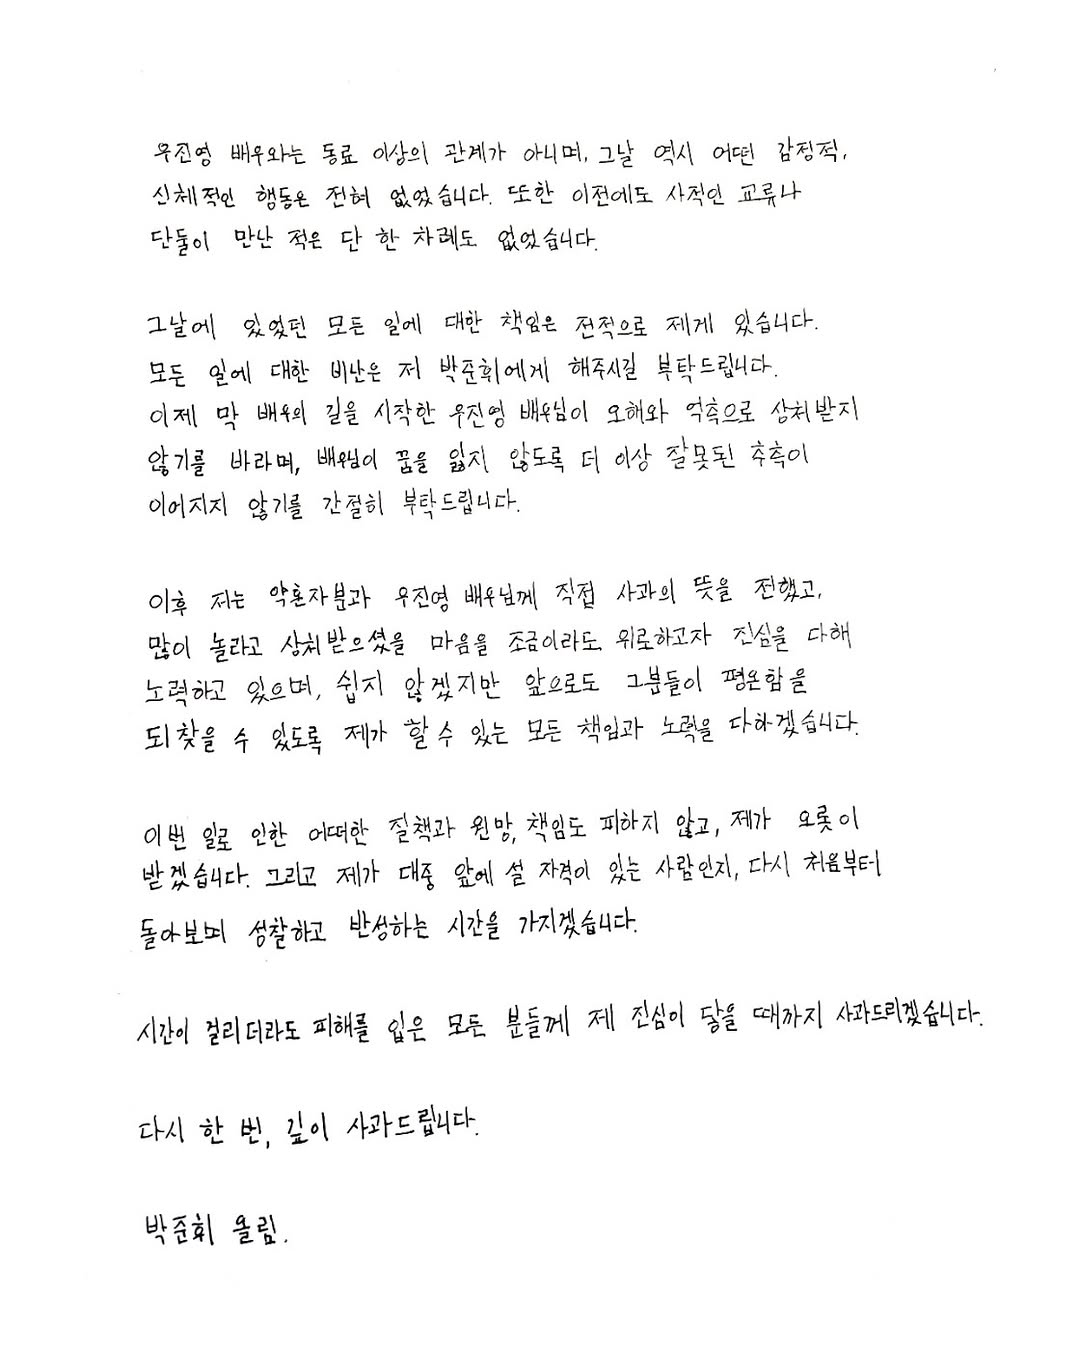 우진영 배우와는 동료 이상의 관계가 아니며, 그날 역시 어떤 감정적,
신체적인 행동은 전혀 없었습니다. 또한 이전에도 사적인 교류나
단둘이 만난 적은 단 한 차례도 없었습니다.
그날에 있었던 모든 일에 대한 책임은 전적으로 제게 있습니다.
모든 일에 대한 비난은 저 박준휘에게 해주시길 부탁드립니다.
이제 막 배우의 길을 시작한 우진영 배우님이 오해와 억측으로 상처받지
않기를 바라며, 배우님이 꿈을 잃지 않도록 더 이상 잘못된 추측이
이어지지 않기를 간절히 부탁드립니다.
이후 저는 약혼자분과 우진영 배우님께 직접 사과의 뜻을 전했고,
많이 놀라고 상처받으셨을 마음을 조금이라도 위로하고자 진심을 다해
노력하고 있으며, 쉽지 않겠지만 앞으로도 그분들이 평온함을
되찾을 수 있도록 제가 할 수 있는 모든 책임과 노력을 다하겠습니다.
이번 일로 인한 어떠한 질책과 원망, 책임도 피하지 않고, 제가 오롯이
받겠습니다. 그리고 제가 대중 앞에 설 자격이 있는 사람인지, 다시 처음부터
돌아보며 성찰하고 반성하는 시간을 가지겠습니다.
시간이 걸리더라도 피해를 입은 모든 분들께 제 진심이 닿을 때까지 사과드리겠습니다.
다시 한 번, 깊이 사과드립니다.
박준휘 올림.